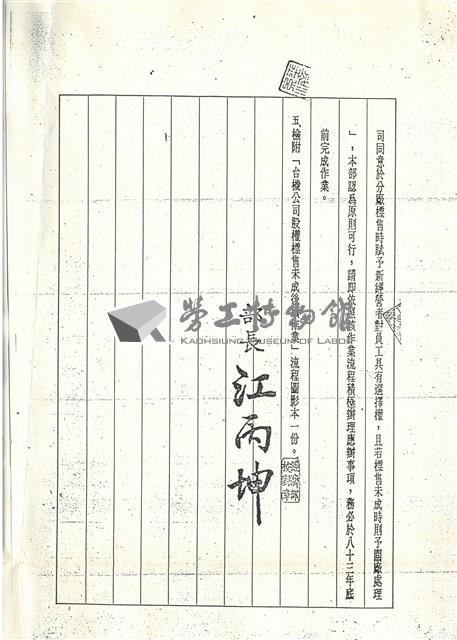 司同意於分廠標售時賦予新經營者對員工具有選擇權，且若標售未成時則予關廠處理
」，本部認為原則可行，請即依照該作業流程積極辦理應辦事項，務必於八十三年底
前完成作業。
五、檢附「台機公司股權標售未成後續作業」流程圖影本一份。
部長 江丙坤
勞工博物館
KAOHSIUNG MUSEUM OF LABOR